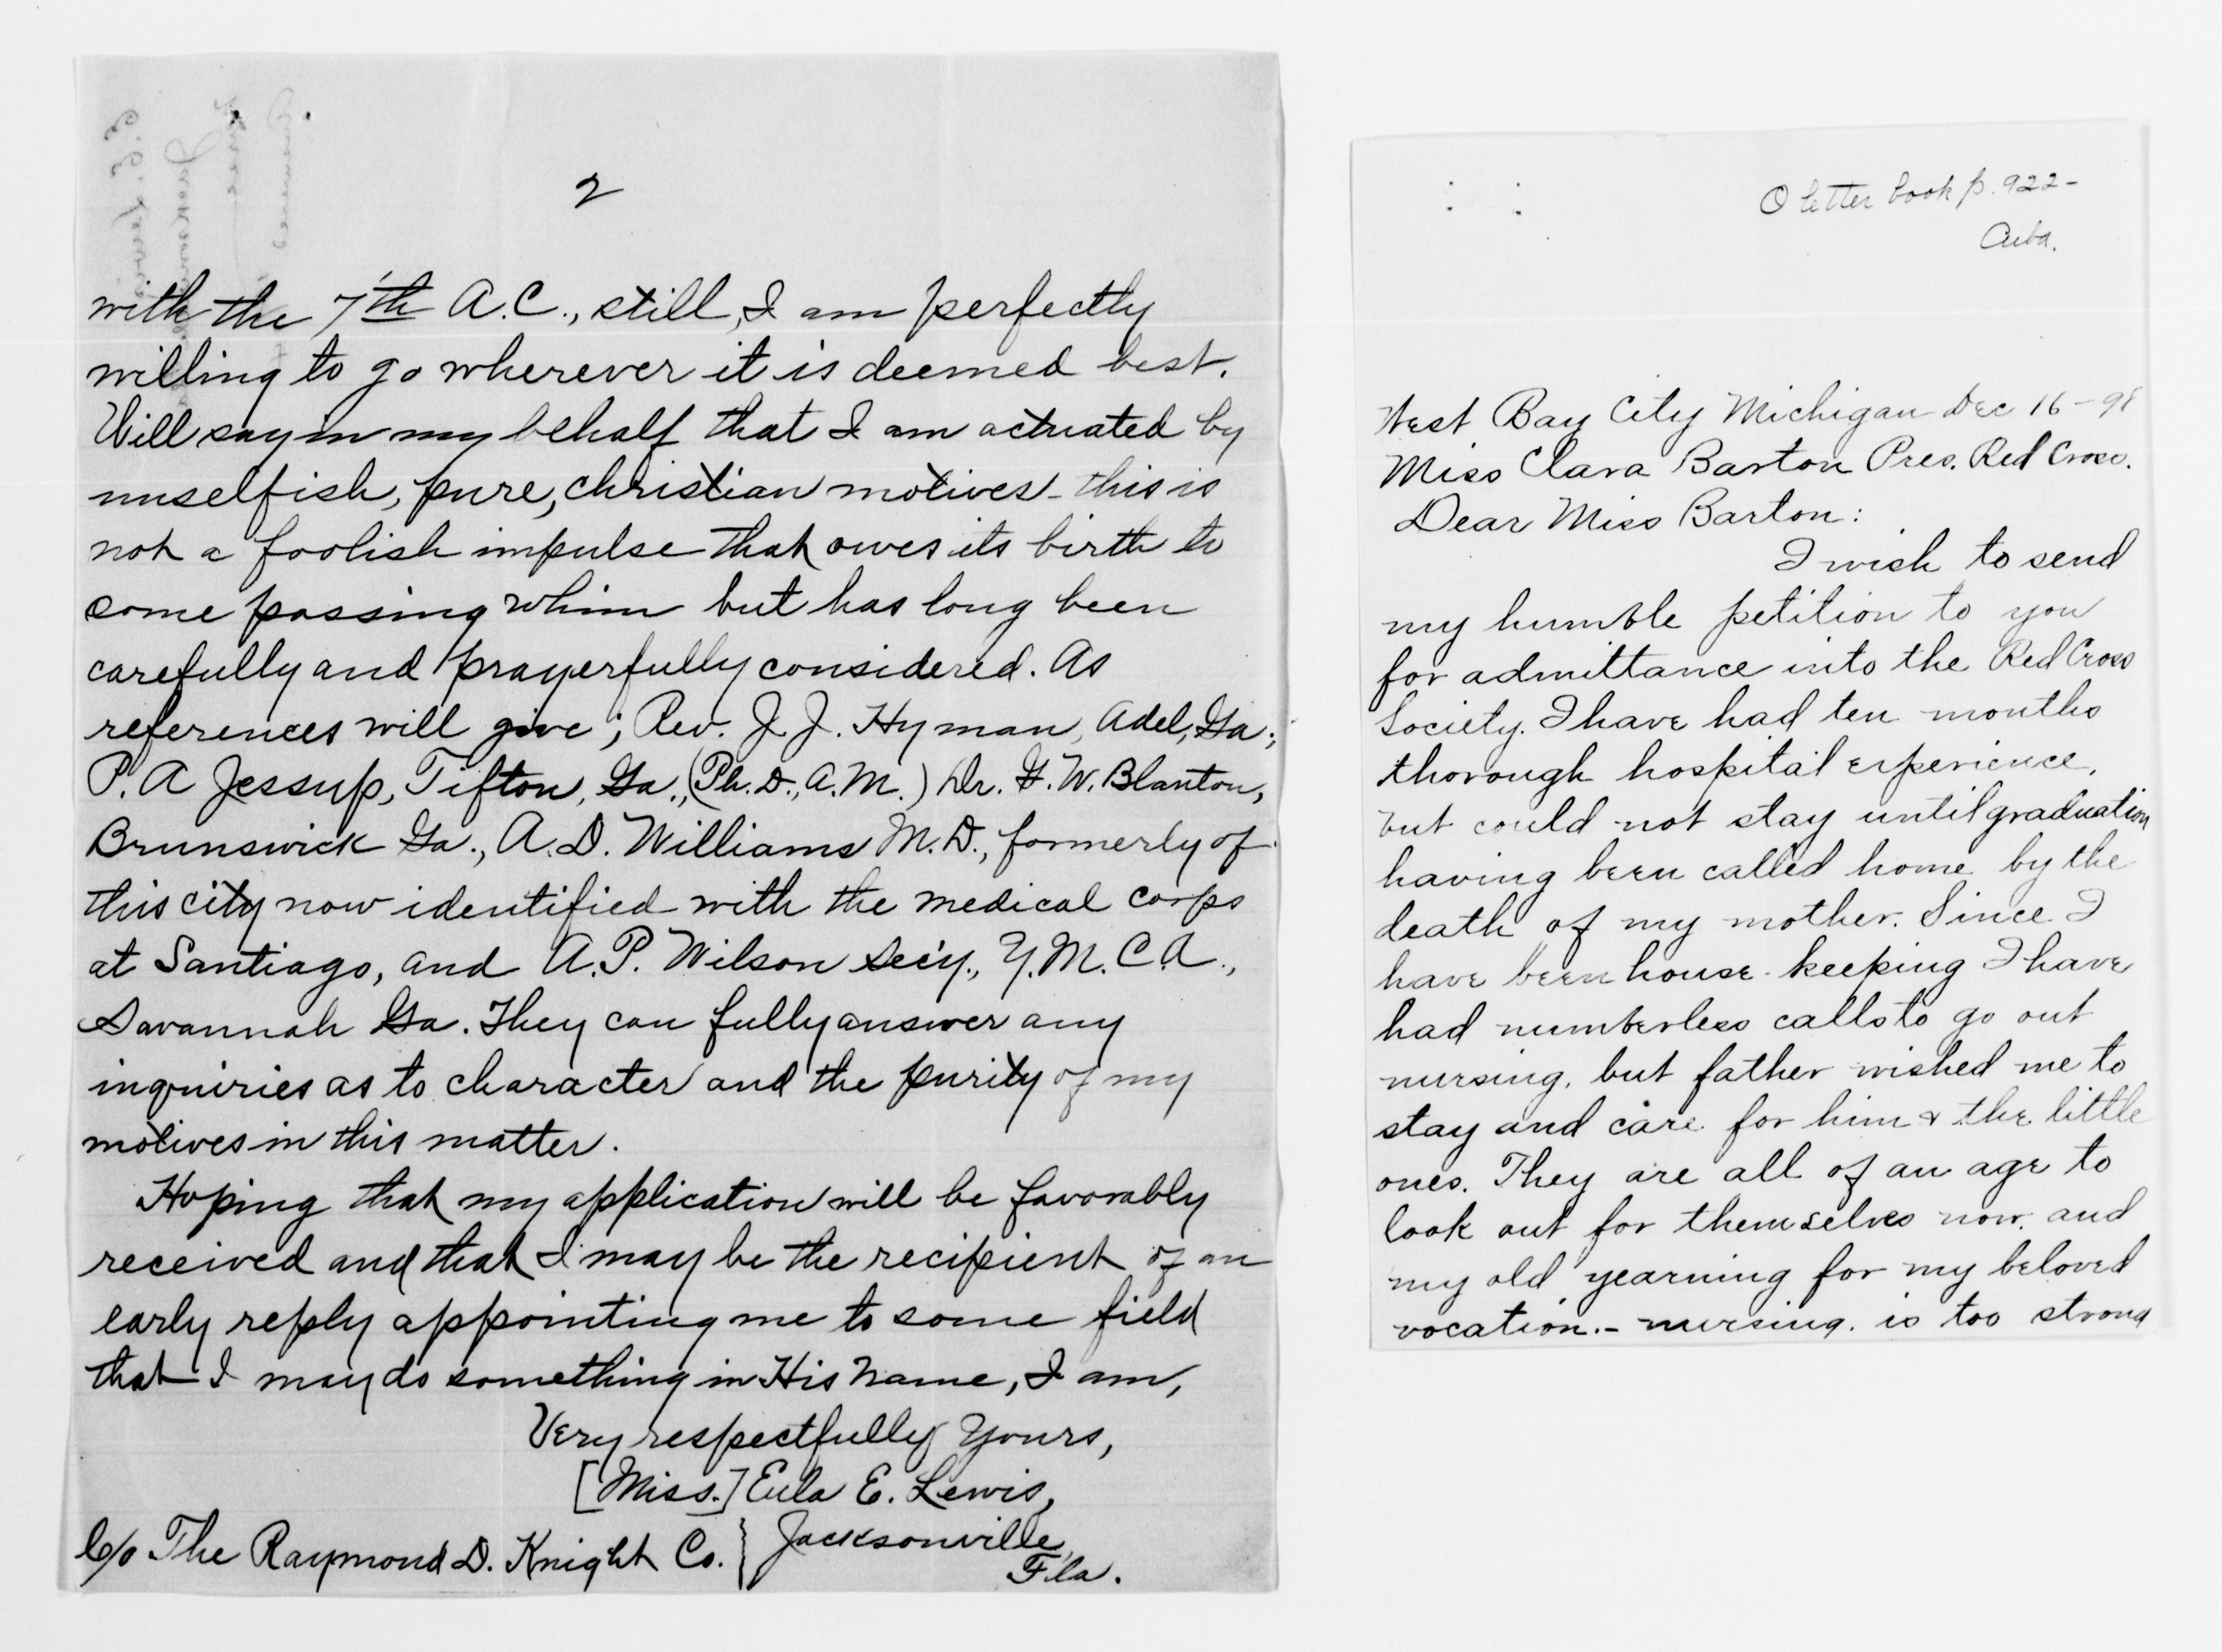 2
with the 7th A.C., still, I am perfectly
willing to go wherever it is deemed best.
Will say in my behalf that I am actuated by
unselfish, pure, christian motives - this is
not a foolish impulse that owes its birth to
some passing whim but has long been
carefully and prayerfully considered. As
references will give; Rev. J. J. Hyman, Adel, Ga.;
P. A Jessup, Tifton, Ga., (Ph. D., A. M.) Dr. F. W. Blanton,
Brunswick Ga., A. D. Williams M. D., formerly of
this city now identified with the medical corps
at Santiago, and A. P. Wilson Sec'y., Y. M. C. A.,
Savannah Ga. They can fully answer any
inquiries as to character and the purity of my
motives in this matter.
Hoping that my application will be favorably
received and that I may be the recipient of an
early reply appointing me to some field
that I may do something in His Name, I am,
Very respectfully Yours,
[Miss.] Eula E. Lewis,
C/o The Raymond D. Knight Co. } Jacksonville,
Fla.
O letter book p. 922-
Cuba.
West Bay City Michigan Dec 16-98
Miss Clara Barton Pres. Red Cross.
Dear Miss Barton:
I wish to send
my humble petition to you
for admittance into the Red Cross
Society. I have had ten months
thorough hospital experience,
but could not stay until graduation
having been called home by the
death of my mother. Since I
have been house-keeping I have
had numberless calls to go out
nursing, but father wished me to
stay and care for him & the little
ones. They are all of an age to
look out for themselves now. and
my old yearning for my beloved
vocation.- nursing. is too strong